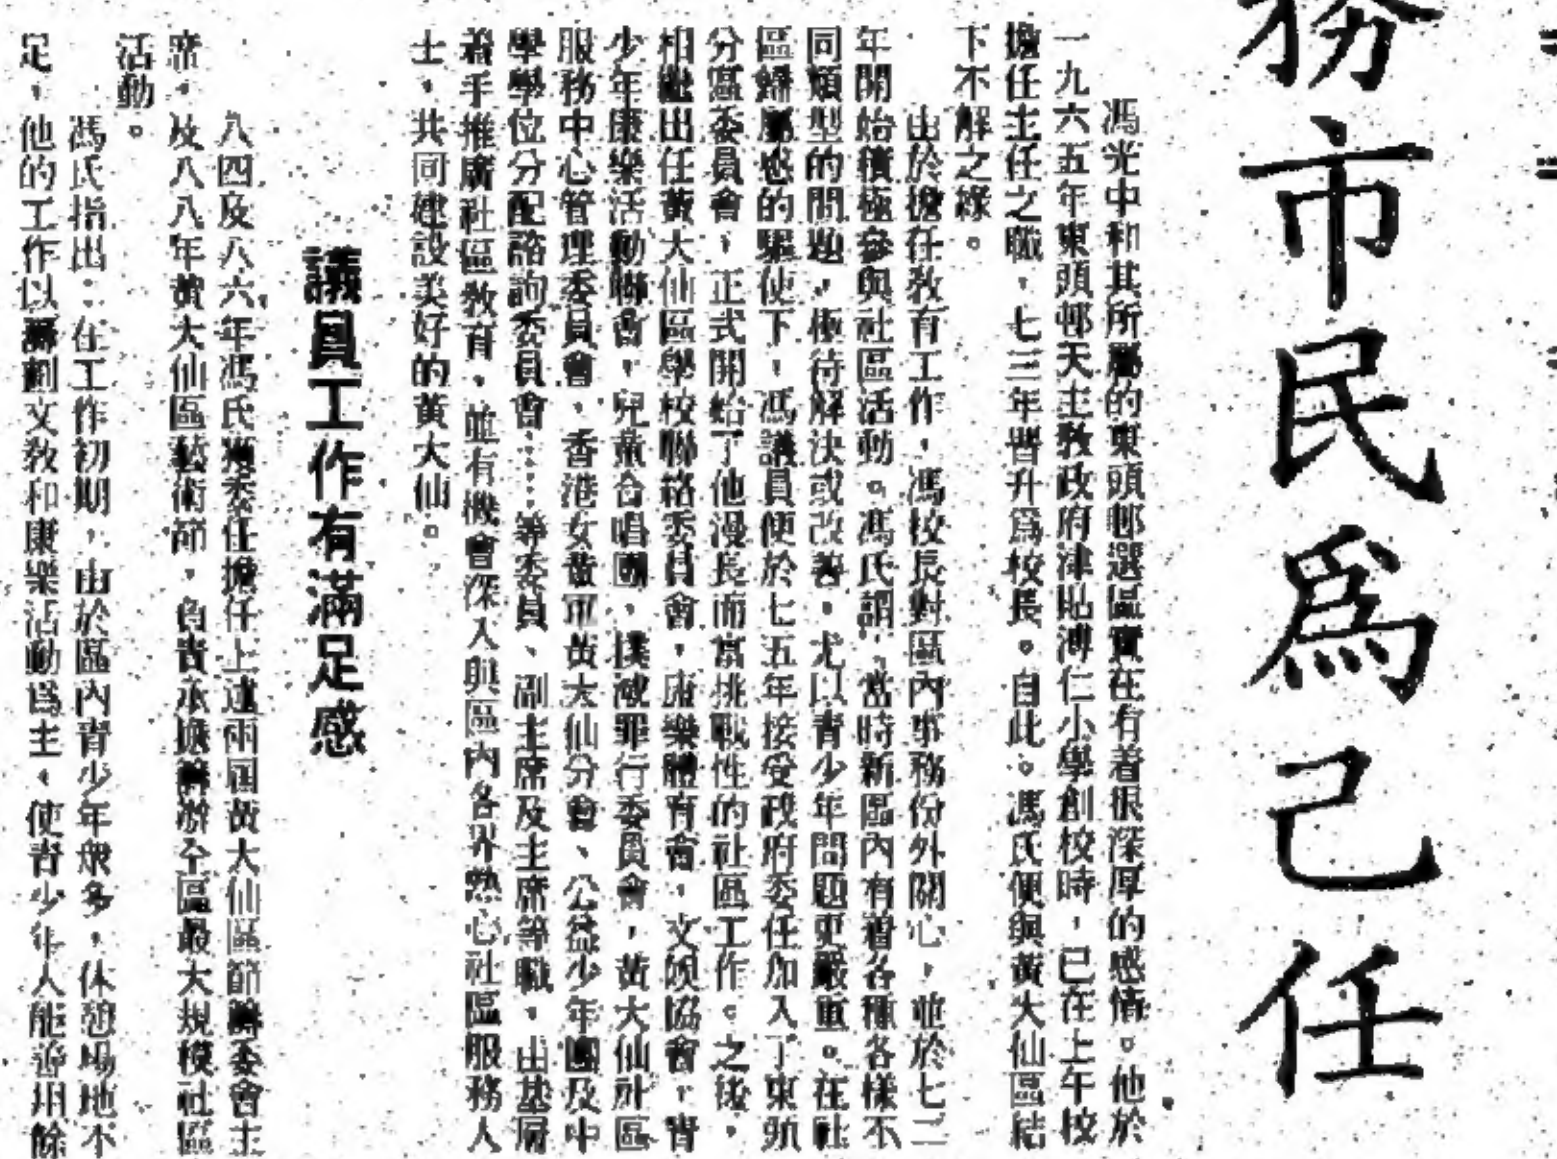 務市民為己任
馮光中和其所屬的東頭邨選區實在有着很深厚的感情。他於
一九六五年東頭邨天主教政府津貼溥仁小學創校時，已在上午校
擔任主任之職，七三年晉升為校長。自此。馮氏便與黃大仙區結
下不解之緣。
由於擔任教育工作，馮校長對區內事務份外關心，並於七二
年開始積極參與社區活動。馮氏謂，當時新區內有着各種各樣不
同類型的問題，極待解決或改善。尤以青少年問題更嚴重。在社
區歸屬感的驅使下，馮議員便於七五年接受政府委任加入了東頭
分區委員會，正式開始了他漫長而富挑戰性的社區工作。之後，
相繼出任黃大仙區學校聯絡委員會，康樂體育會，文娛協會，青
少年康樂活動聯會，兒童合唱團、撲滅罪行委員會，黃大仙社區
服務中心管理委員會、香港女童軍黃大仙分會、公益少年團及中
學學位分配諮詢委員會……等委員、副主席及主席等職，由基層
着手推廣社區教育，並有機會深入與區內各界熱心社區服務人
士，共同建設美好的黃大仙。
議員工作有滿足感
八四及八六年馮氏獲委任擔任上述兩屆黃大仙區節籌委會主
席，及八八年黃大仙區藝術節，負責承擔籌辦全區最大規模社區
活動。
馮氏指出：在工作初期，由於區內青少年眾多，休憩場地不
足，他的工作以籌劃文教和康樂活動為主，使青少年人能善用餘